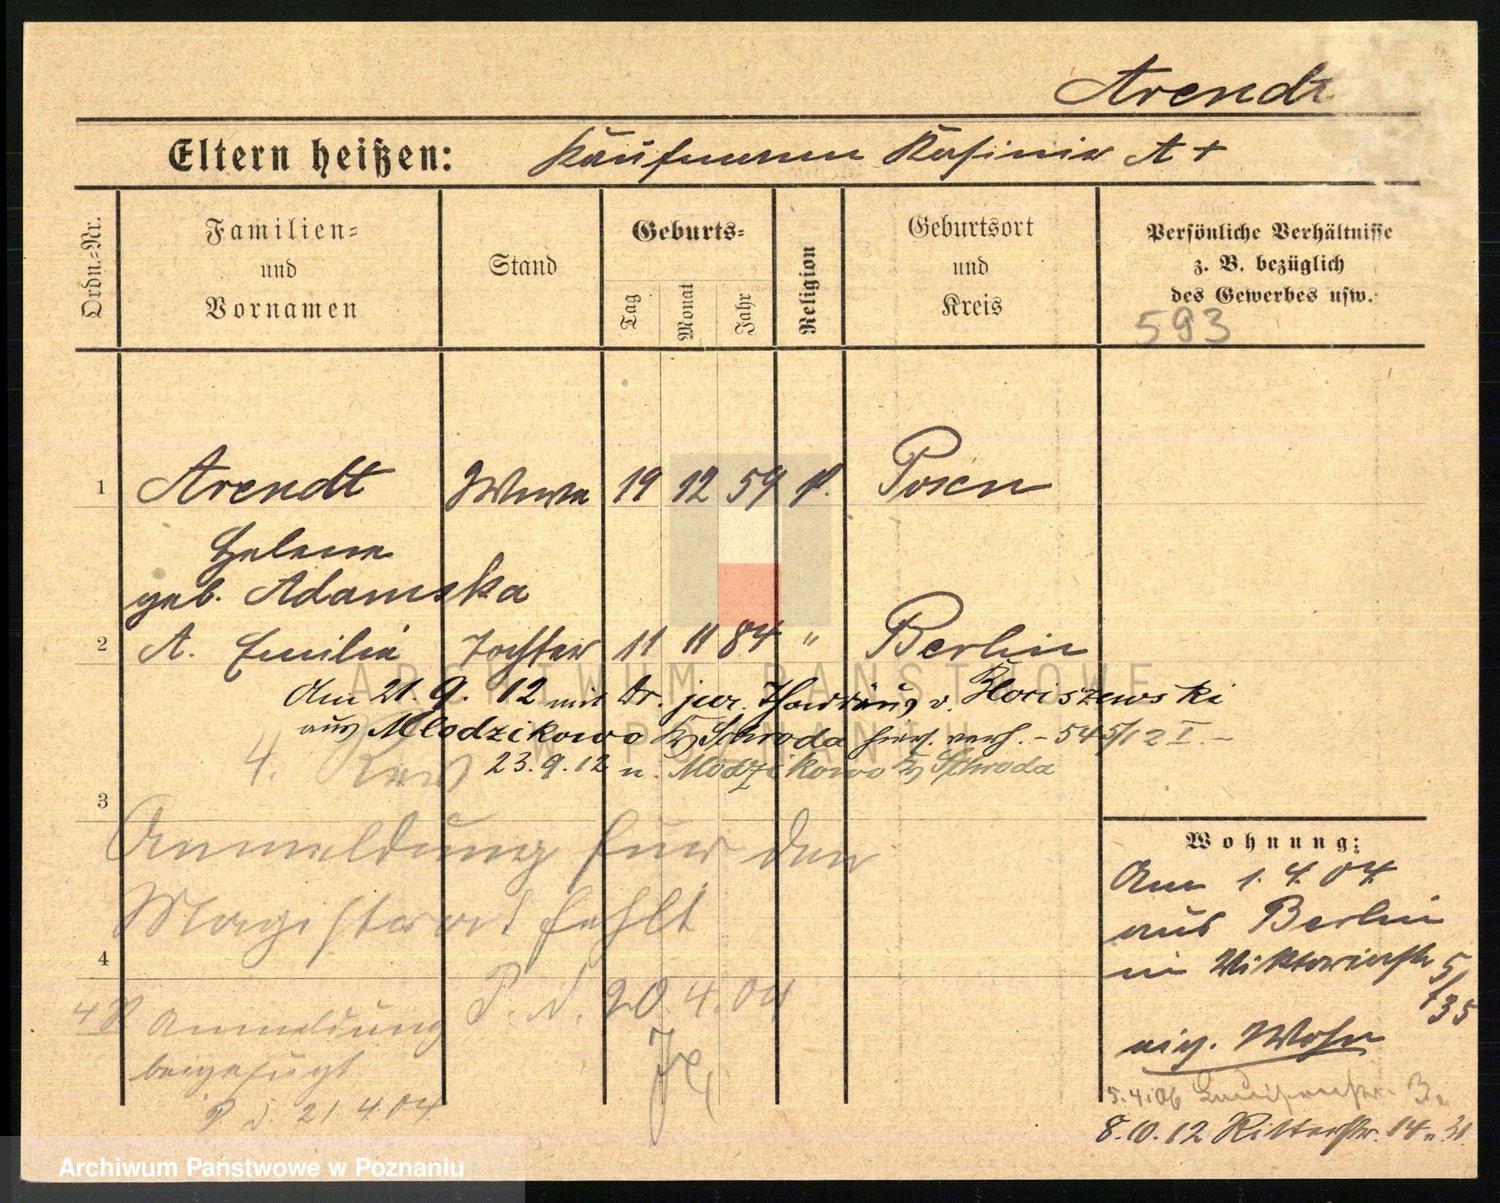 Arendt
Eltern heißen: Kaufmann Kasimir A +
Ordn.-Nr.
Familien-
und
Vornamen
Stand
Geburts-
Tag
Monat
Jahr
Religion
Geburtsort
und
Kreis
Persönliche Verhältnisse
z. B. bezüglich
des Gewerbes usw.
593
1 Arendt Wwe 19 12 59 Posen
Helene
geb. Adamska
2 A. Emilie Tochter 11 11 84 " Berlin
ARCHIWUM PAŃSTWOWE
W POZNANIU
Am 21. 9. 12 mit Dr. jur. Thaddäus v.
aus Mlodzikowo Schroda verh. - 545/12 I. -
4. Rev 23. 9. 12 n. Schroda
3
Anmeldung für den
Magistrat fehlt
4
P. d. 20.4.04
Anmeldung
beigefügt
P. d. 21.4.04
Wohnung:
Am 1. 4. 04
aus Berlin
in Viktoriastr 5/35
eig. Wohn
5.4.06 Luisenstr. 3
8.10.12 Ritterstr. 14
Archiwum Państwowe w Poznaniu